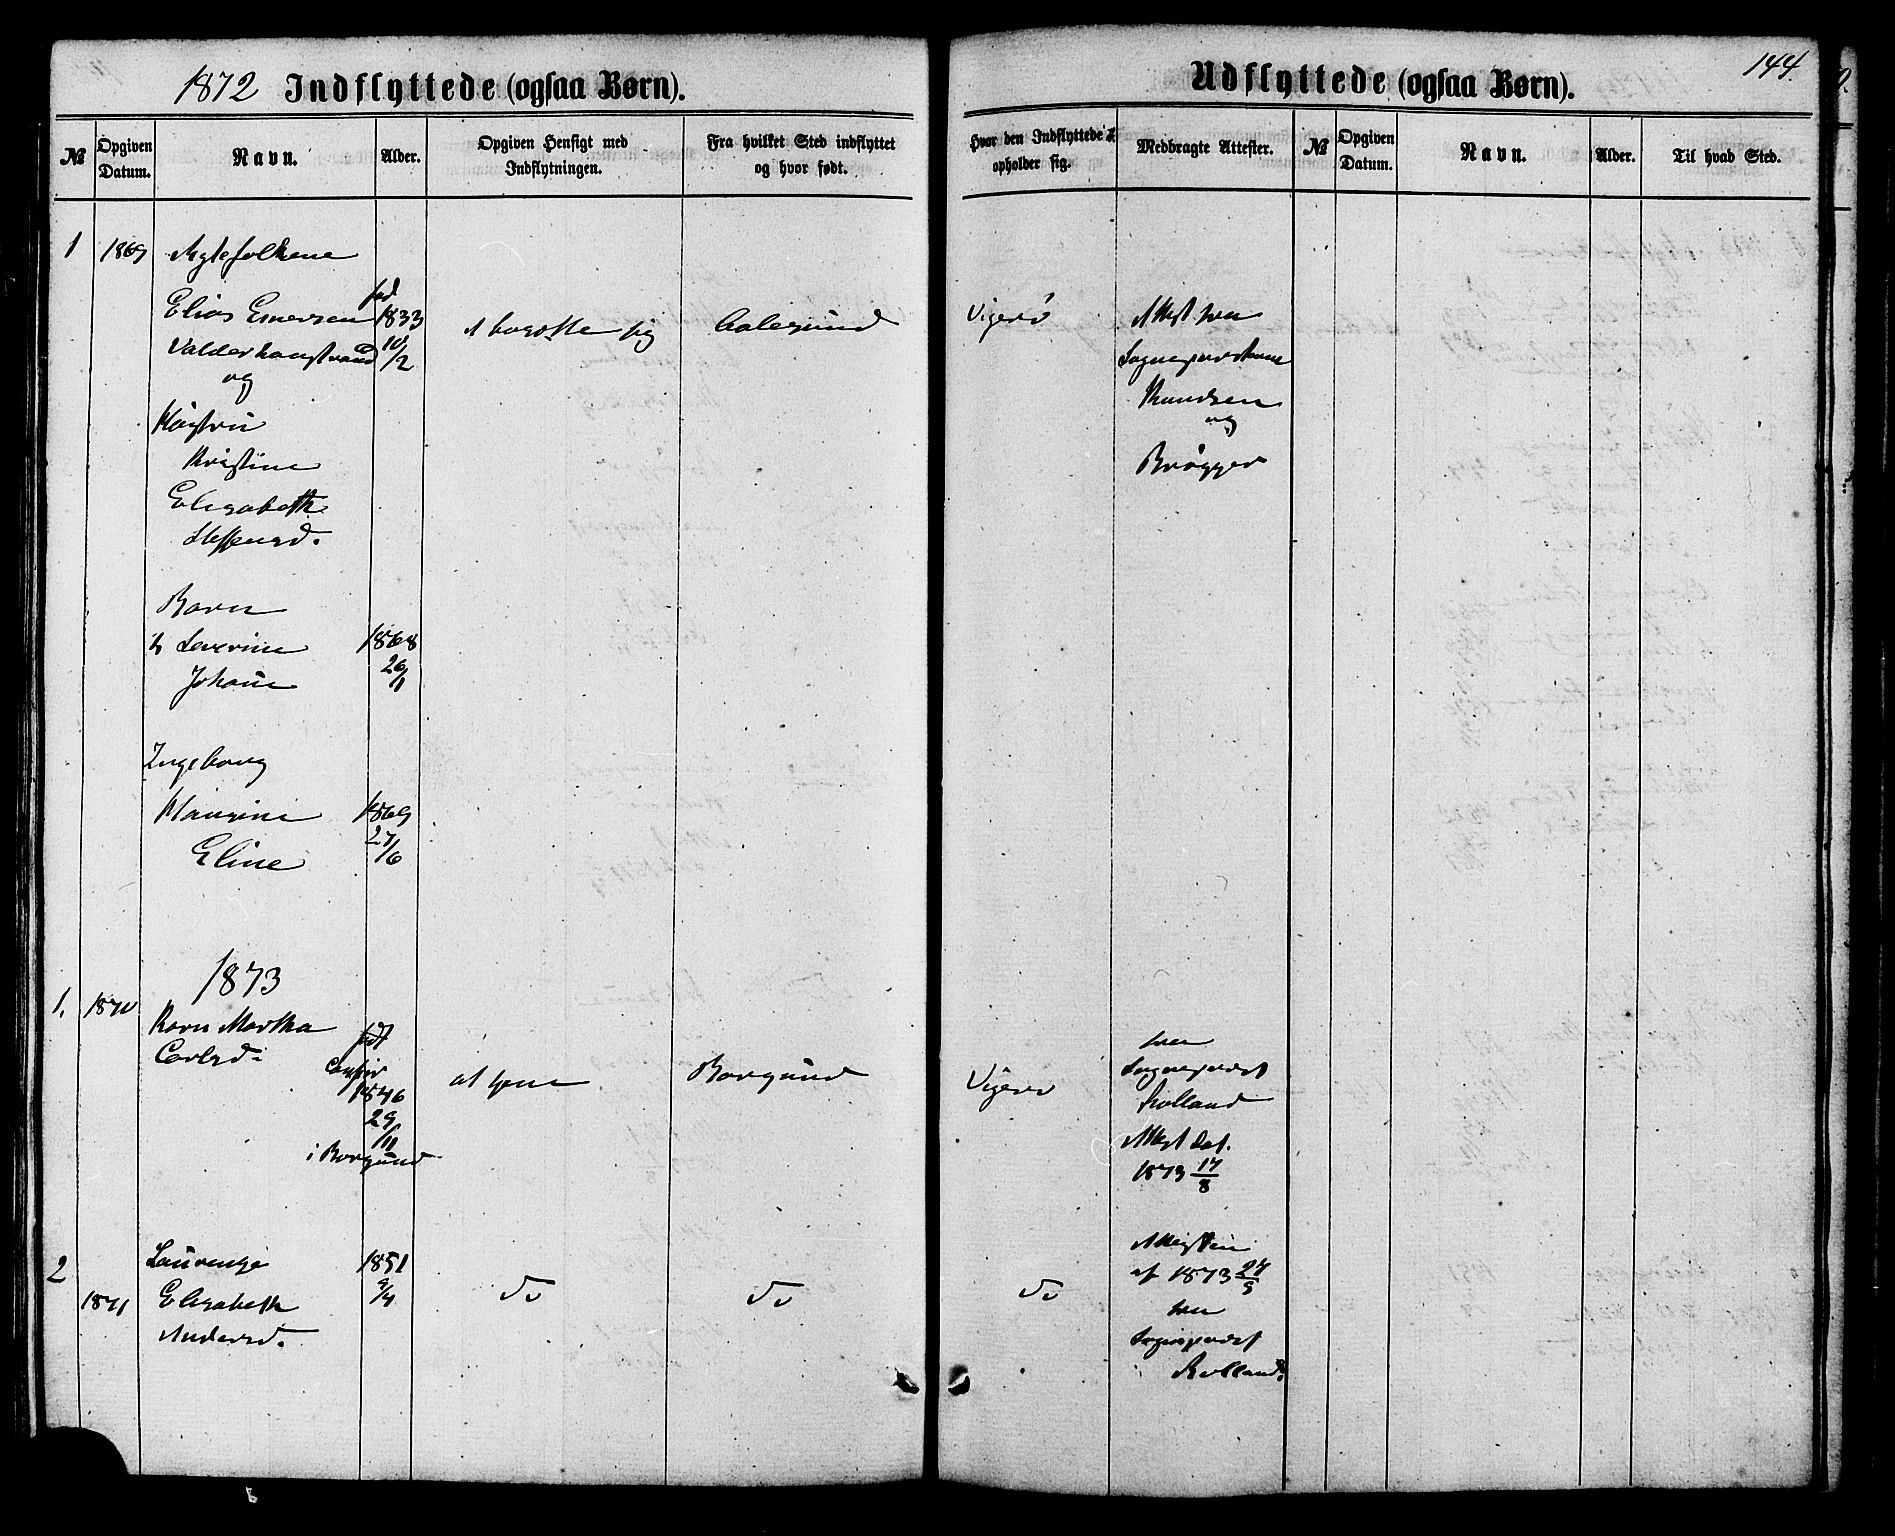 1872 Indflyttede (ogsaa Børn).
№
Opgiven Datum.
Navn.
Alder.
Opgiven Hensigt med Indflytningen.
Fra hvilket Sted indflyttet og hvor født.
1 1869 Ægtefolkene
Elias Enersen
Valderhougstrand
og
fød
1833
10/2
At bosætte sig
Aalesund
Hustru
Kristine
Elisabeth
Steffensd.
Børn
Severine
Johanne
1868
26/1
Ingeborg
Maurine
Eline
1869
27/6
1873
1. 1870
Karn Martha
Carlsd.
født
1846
29/11
i Borgund
at tjene
Borgund
2
1871
Laurense
Elisabeth
Andersd.
1851
9/4
Do
Do
Udflyttede (ogsaa Børn).
144.
Hvor den Indflyttede opholder sig.
Medbragte Attester.
№
Opgiven Datum.
Navn.
Alder.
Til hvad Sted.
Vigerø
Attest fra
Sognepresterne
Knudsen
og
Brøgger
Vigerø
fra
Sogneprest
Rolland
Attest dat.
1873 17/8
Do
Attesten
af 1873 27/9
fra
Sogneprest
Rolland.